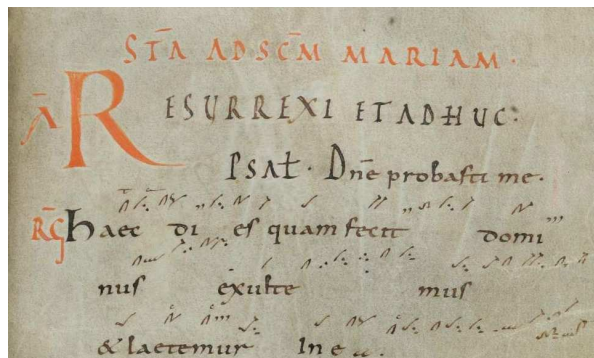 STĀ AD SCM̄ MARIAM.
Ā RESURREXI ET ADHUC:
PSAŁ. Dn̄e probasti me.
RḠ Haec di es quam fecit domi
nus exulte mus
& laetemur In e a.